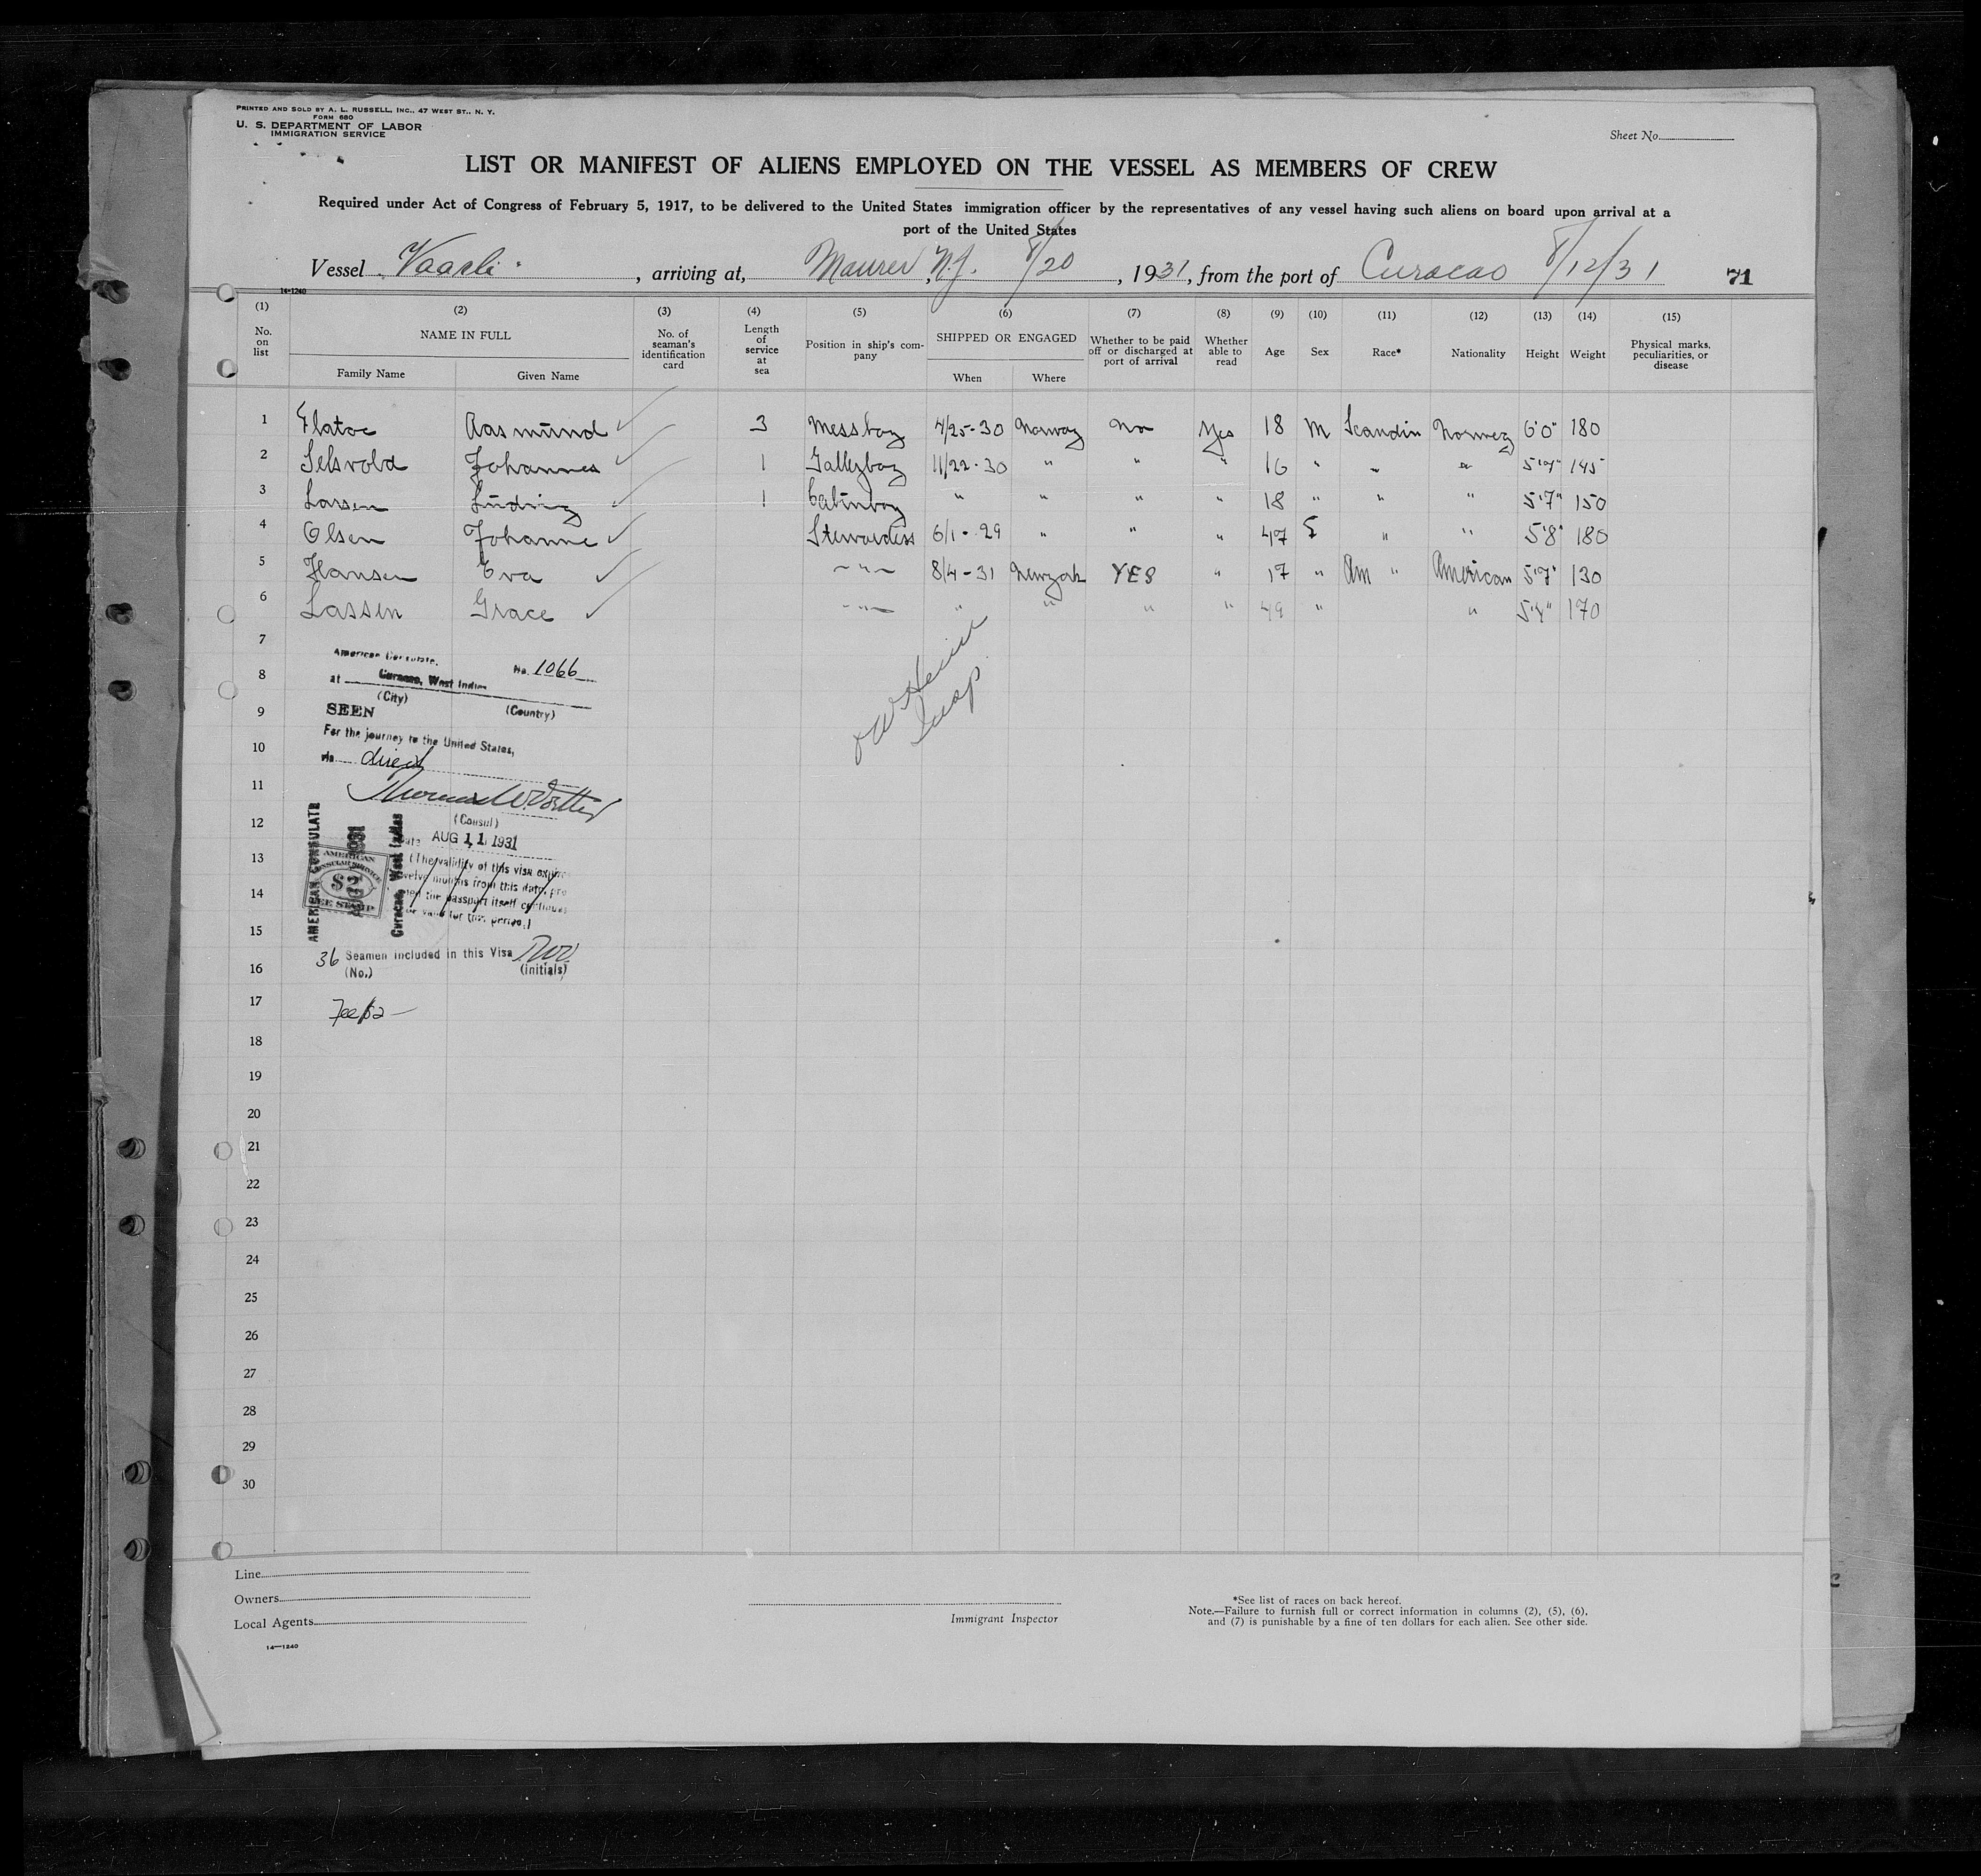 PRINTED AND SOLD BY A. L. RUSSELL, INC., 47 WEST ST., N. Y.
FORM 680
U. S. DEPARTMENT OF LABOR
IMMIGRATION SERVICE
Sheet No.
LIST OR MANIFEST OF ALIENS EMPLOYED ON THE VESSEL AS MEMBERS OF CREW
Required under Act of Congress of February 5, 1917, to be delivered to the United States immigration officer by the representatives of any vessel having such aliens on board upon arrival at a
port of the United States
Vessel Vaarli, arriving at, Maurer, N.J. 8/20, 1931, from the port of Curacao 8/12/31 71
14-1240
(1) (2) (3) (4) (5) (6) (7) (8) (9) (10) (11) (12) (13) (14) (15)
No. on list NAME IN FULL Family Name Given Name No. of seaman's identification card Length of service at sea Position in ship's company SHIPPED OR ENGAGED When Where Whether to be paid off or discharged at port of arrival Whether able to read Age Sex Race* Nationality Height Weight Physical marks, peculiarities, or disease
1 Flatoe Aasmund 3 Messboy 4/25-30 Norway No Yes 18 M Scandin Norweg 6'0" 180
2 Selsvold Johannes 1 Galleyboy 11/22-30 " " " 16 " " " 5'7" 145
3 Larsen Ludvig 1 Cabinboy " " " " 18 " " " 5'7" 150
4 Olsen Johanne Stewardess 6/1-29 " " " 47 F " " 5'8" 180
5 Hansen Eva " 8/4-31 Newyork YES " 17 " Am " American 5'7" 130
6 Lassen Grace " " " " " 49 " " 170
7
8
9
10
11
12
13
14
15
16
17
18
19
20
21
22
23
24
25
26
27
28
29
30
American Consulate,
No. 1066
at Curacao, West Indies
(City) (Country)
SEEN
For the journey to the United States,
via direct
(Consul)
Date AUG 11 1931
(The validity of this visa expires
twelve months from this date, pro
the passport itself continues
valid for this period.)
AMERICAN CONSULATE
Curacao, West Indies
AMERICAN
CONSULAR SERVICE
$2
FEE STAMP
36 Seamen included in this Visa
(No.) (initials)
Fee $2
Insp
Line
Owners
Local Agents
14—1240
Immigrant Inspector
*See list of races on back hereof.
Note.—Failure to furnish full or correct information in columns (2), (5), (6),
and (7) is punishable by a fine of ten dollars for each alien. See other side.